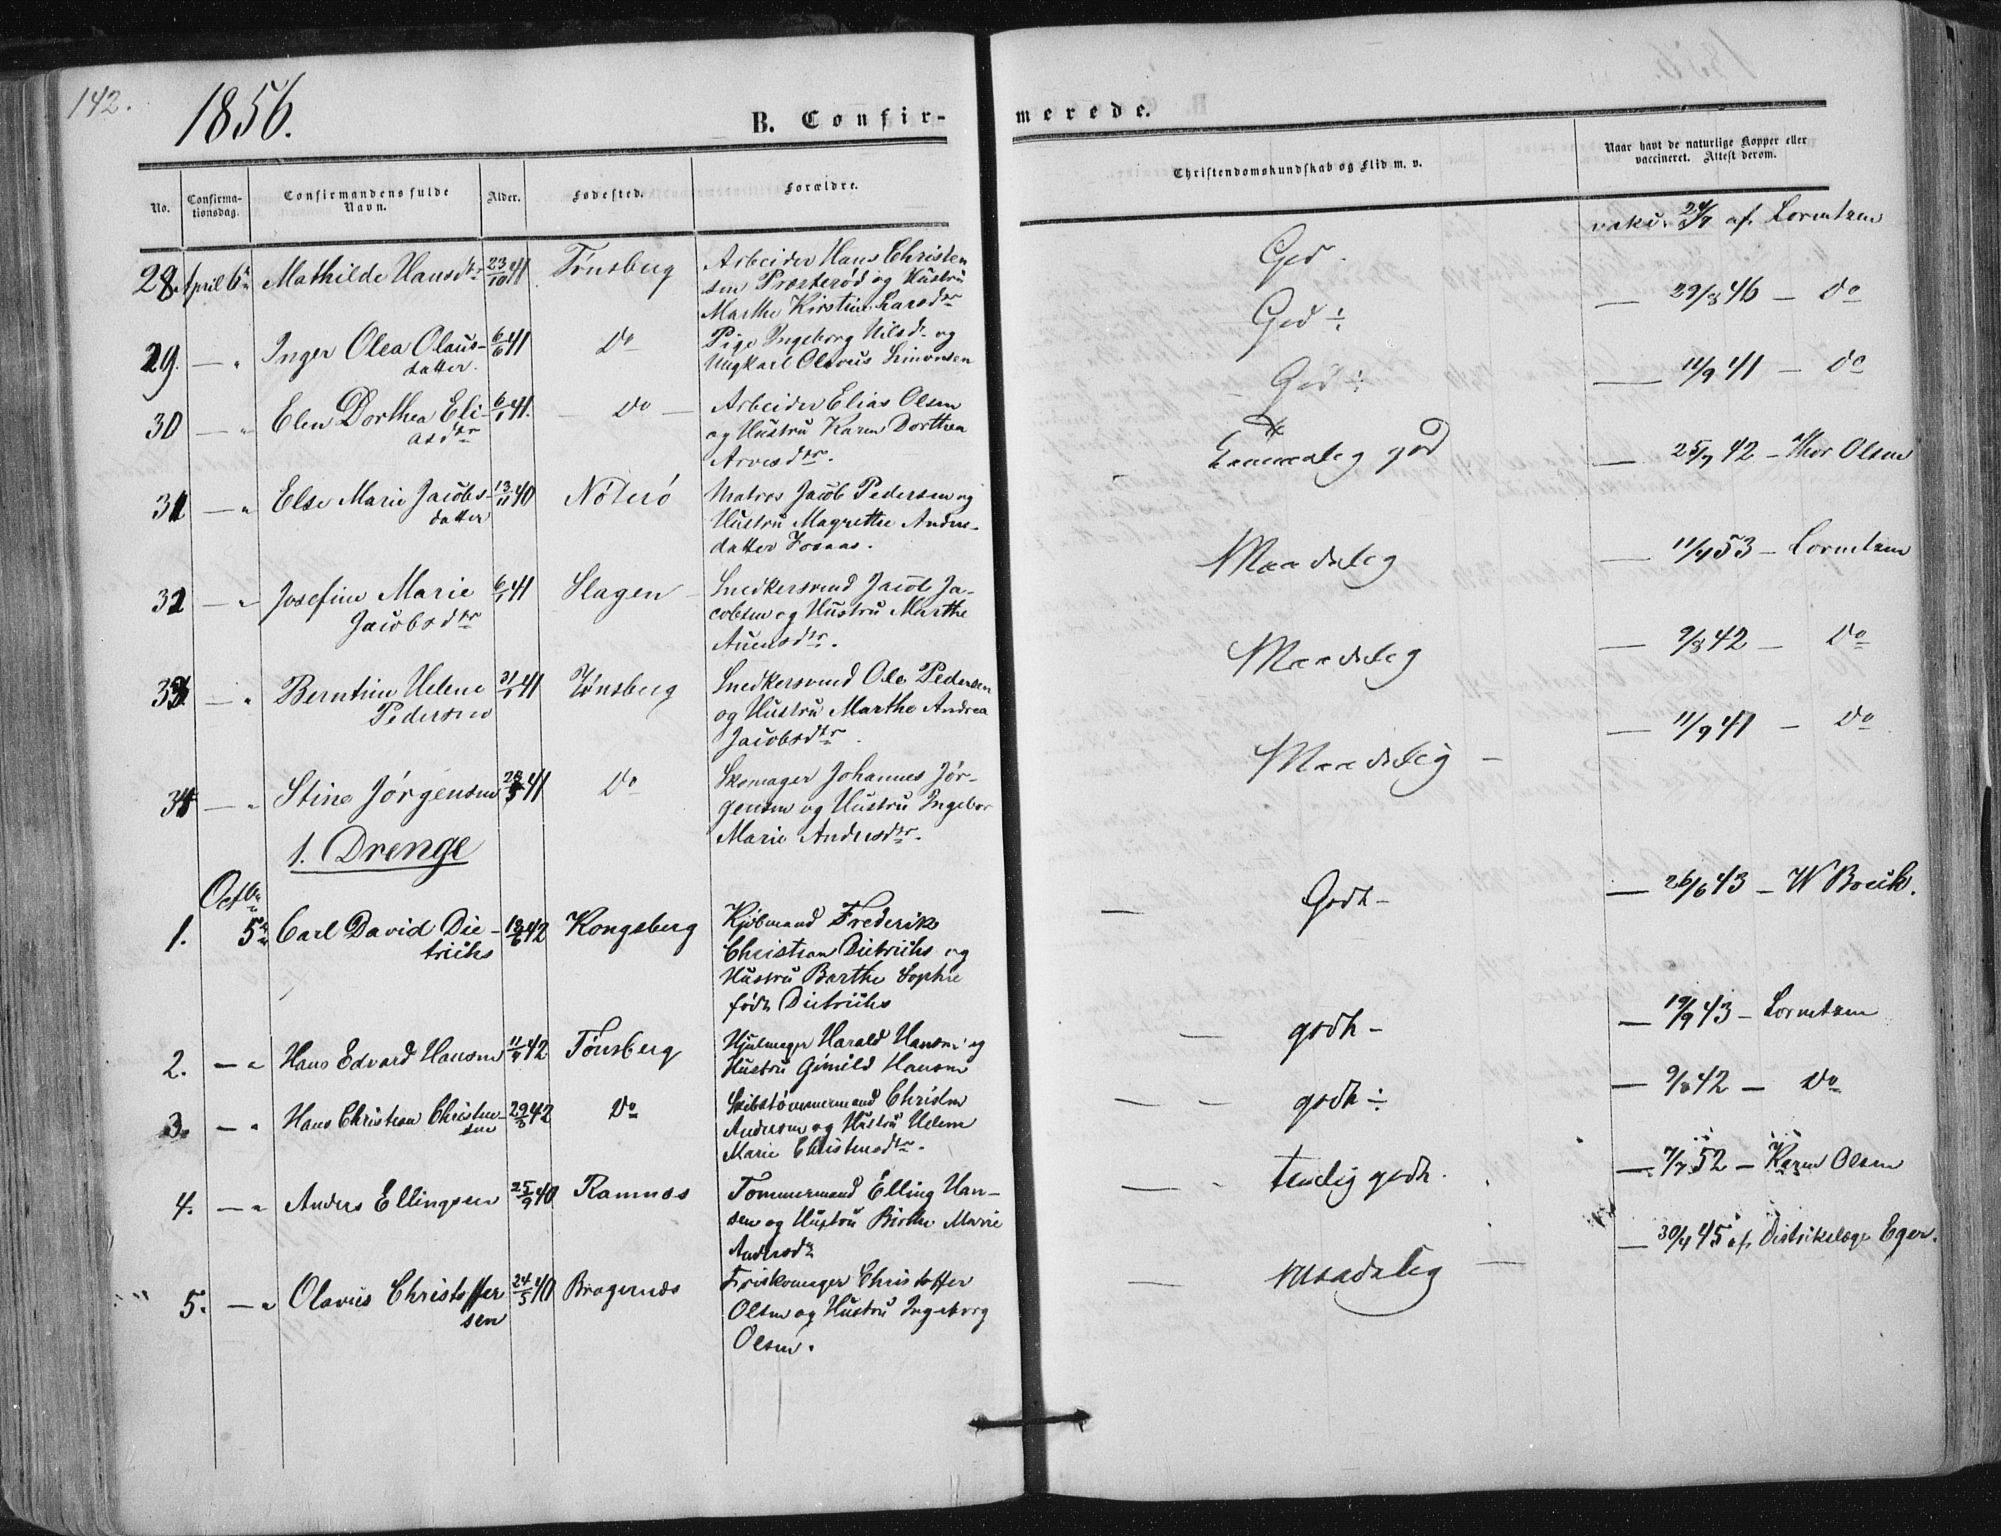 142.
1856.
B. Confir-
merede.
No.
Confirma-
tionsdag.
Confirmandens fulde
Navn.
Alder.
Fødested.
Forældre.
Christendomskundskab og Flid m. v.
Naar havt de naturlige Kopper eller
vaccineret. Attest derom.
28 April 6te Mathilde Hansdtr 23/10 41 Tønsberg Arbeider Hans Christen
sen Præsterød og Hustru
Marthe Kirstine Larsdtr
God.
29. — " Inger Olea Olaus- 6/6 41 Do Pige Ingeborg Nilsd. og
datter. Ungkarl Olavus Simonsen
God ÷ — 29/8 46 — Do
30 — " Elen Dorthea Eli- 6/1 41. — Do — Arbeider Elias Olsen
asdtr og Hustru Karen Dorthea
God ÷ — 11/9 41 — Do
31 — " Else Marie Jacobs- 13/11 40 Nøterø Matros Jacob Pedersen og
datter Hustru Magrethe Anders-
datter
god — 25/7 42 — Thor Olsen
32 — " Josefine Marie 6/1 41 Slagen — Snedkersvend Jacob Ja-
Jacobsdtr cobsen og Hustru Marthe
Maadelig — 53 — Lorentzen
33 — " Berntine Helene 41 Tønsberg Snedkersvend Ole Pedersen
Pedersen og Hustru Marthe Andrea
Jacobsdtr
Maadelig — 9/8 42 — Do
34 — " Stine Jørgensen 41 Do Skomager Johannes Jør-
gensen og Hustru Ingebor
Marie Andersdtr.
Maadelig — — 11/9 41 — Do
1. Drenge
Octbr
1. 5te Carl David Die- 18/6 42 Kongsberg Kjøbmand Frederik
trichs Christian Dietrichs og
Hustru Barthe Sophie
født Dietrichs
— Godt — — 26/6 43 — W Boeck.
2. — " Hans Edvard Hansen 42 Tønsberg Hjulmager Harald Hansen og
Hustru Hansen
— godt — — 19/9 43 — Lorentzen
3. — " Hans Christian Christen 29/3 42 Do Skibstømmermand Christen
sen Andersen og Hustru Helene
Marie Christensdtr.
— godt ÷ — 9/8 42 — Do
4. — " Anders Ellingsen 25/9 40 Ramnæs Tømmermand Elling Han-
sen og Hustru Birthe Marie
Andersdtr
— temelig godt. — 7/7 52 — Karen Olsen
5. — " Olavus Christoffer 24/5 40 Bragernæs Christoffer
sen Olsen og Hustru Ingeborg
Olsen.
— Maadelig — — 30/4 45 af Distriktslæge Eger.